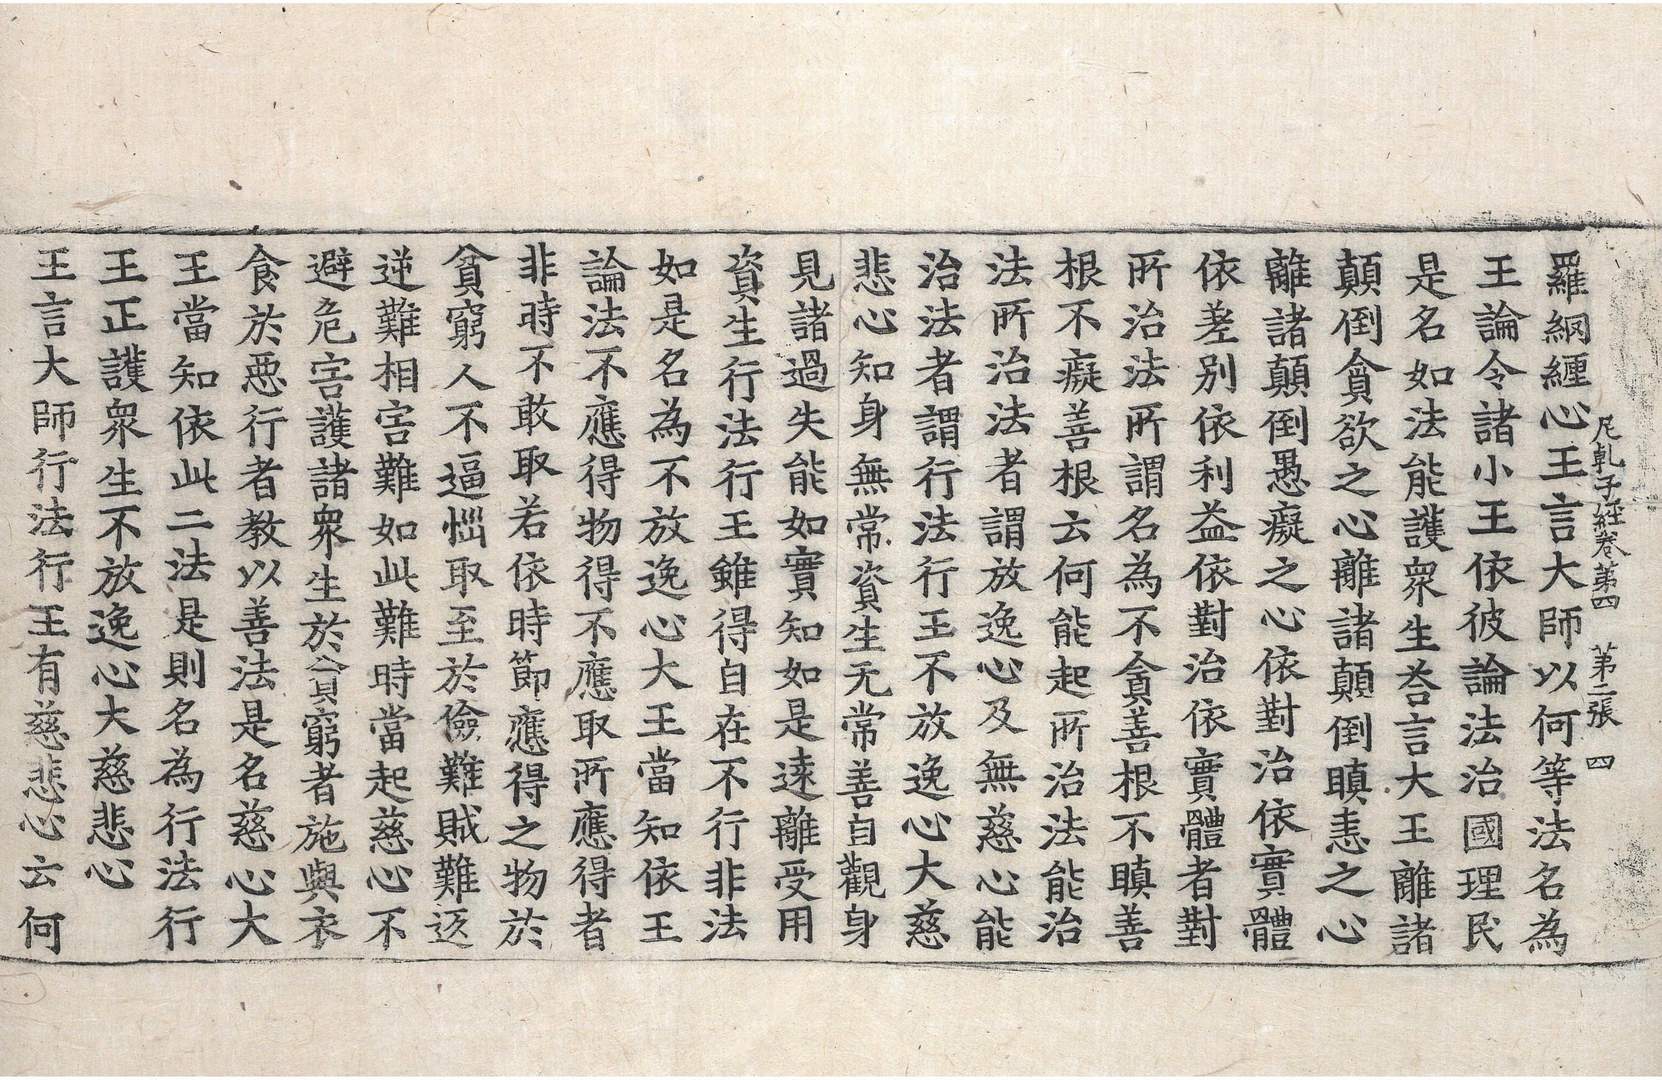 尼乾子經卷第四 第二張 四
羅網纏心王言大師以何等法名為
王論令諸小王依彼論法治國理民
是名如法能護衆生荅言大王離諸
顛倒貪欲之心離諸顛倒瞋恚之心
離諸顛倒愚癡之心依對治依實體
依差別依利益依對治依實體者對
所治法所謂名為不貪善根不瞋善
根不癡善根云何能起所治法能治
法所治法者謂放逸心及無慈心能
治法者謂行法行王不放逸心大慈
悲心知身無常資生无常善自觀身
見諸過失能如實知如是遠離受用
資生行法行王雖得自在不行非法
如是名為不放逸心大王當知依王
論法不應得物得不應取所應得者
非時不敢取若依時節應得之物於
貧窮人不逼惱取至於儉難賊難返
逆難相害難如此難時當起慈心不
避危害護諸衆生於貧窮者施與衣
食於惡行者教以善法是名慈心大
王當知依此二法是則名為行法行
王正護衆生不放逸心大慈悲心
王言大師行法行王有慈悲心云何